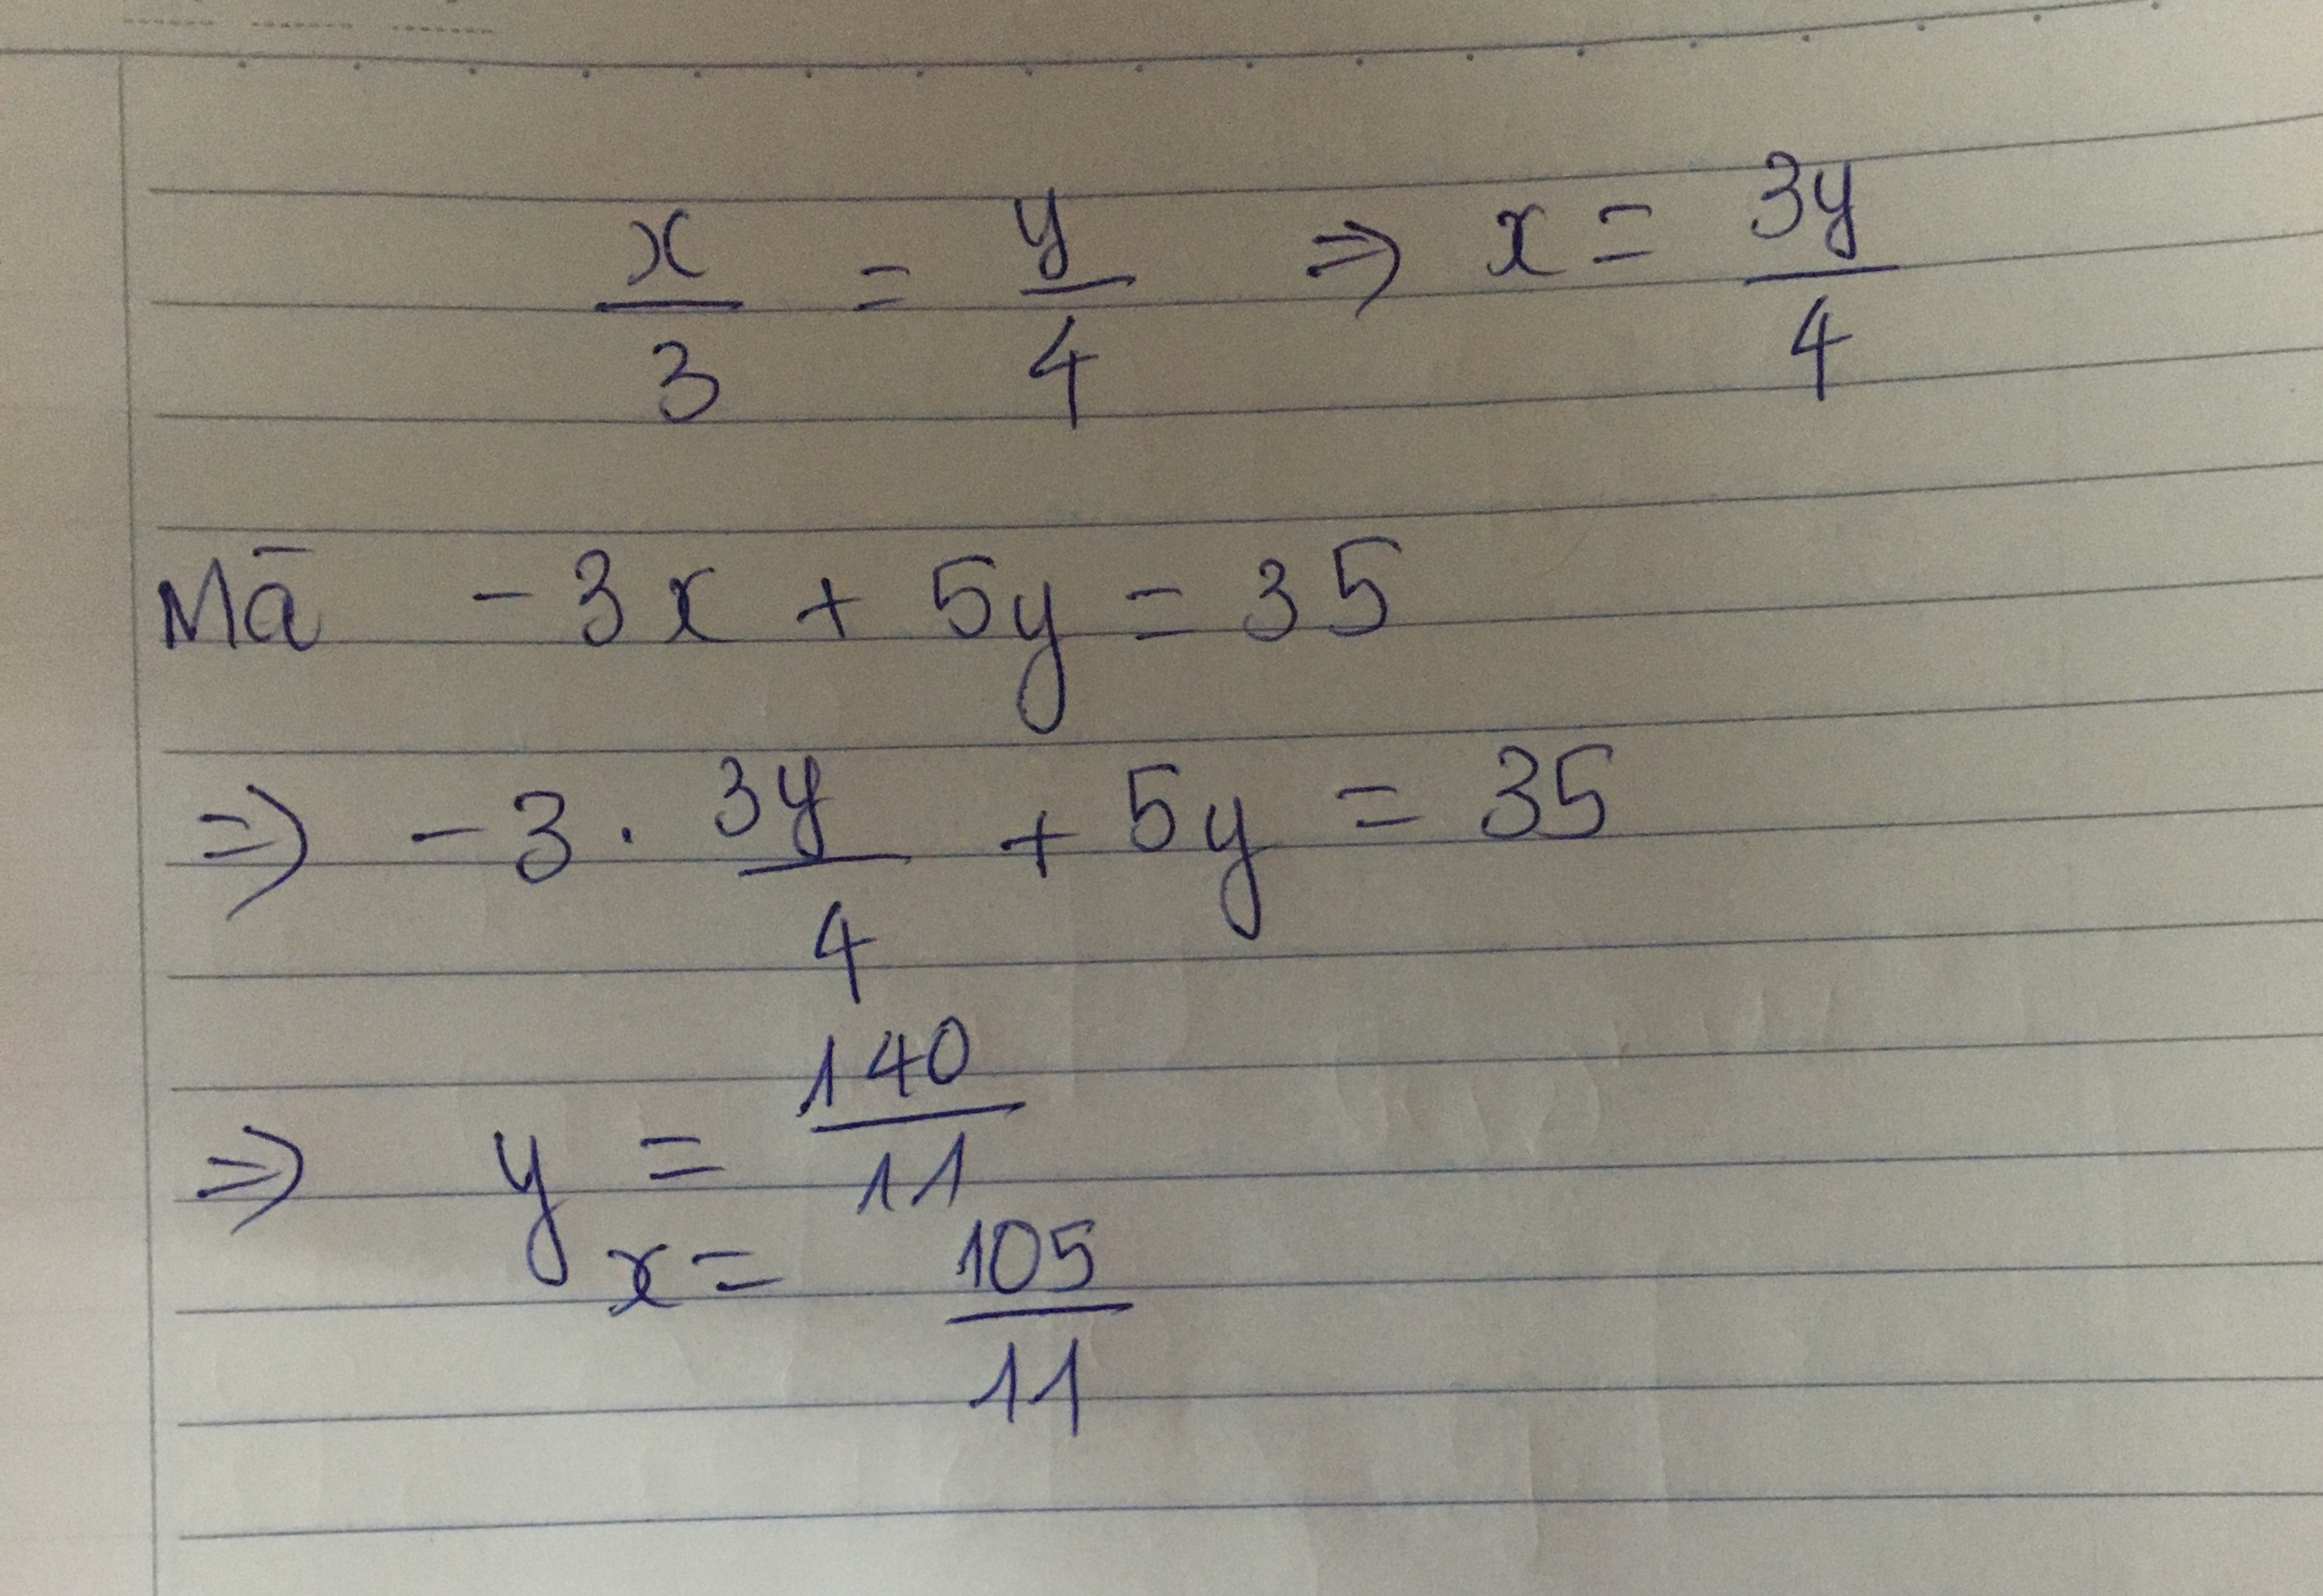 x/3 = y/4 => x = 3y/4
Mā -3x + 5y = 35
=> -3 . 3y/4 + 5y = 35
=> y = 140/11
x = 105/11